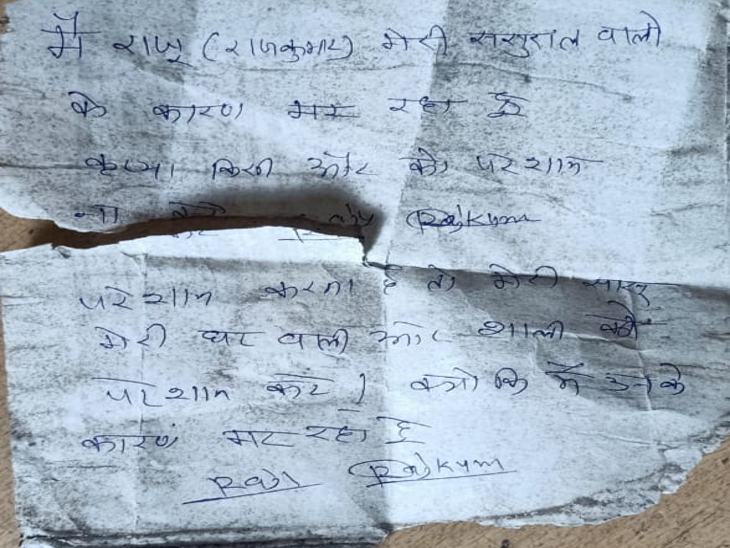 मैं राजू (राजकुमार) मेरी ससुराल वालो
के कारण मर रहा हूँ
कृप्या किसी और को परेशान
ना करे Raju Rajkum
परेशान करना है तो मेरी सास
मेरी घर वाली और शाली को
परेशान करे। क्योकि मैं उनके
कारण मर रहा हूँ
Raju Rajkum